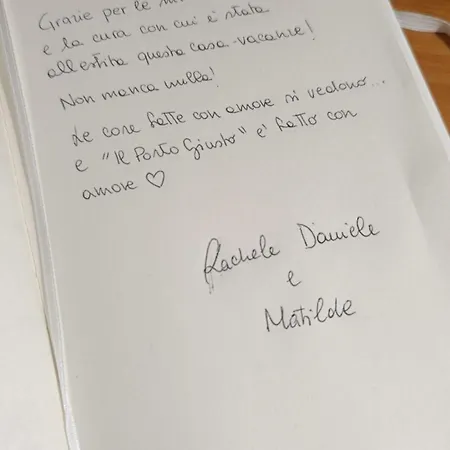 Grazie per le
e la cura con cui è stata
allestita questa casa-vacanze!
Non manca nulla!
Le cose fatte con amore si vedono...
e "Il Posto Giusto" è fatto con
amore ♡
Rachele Daniele
e
Matilde